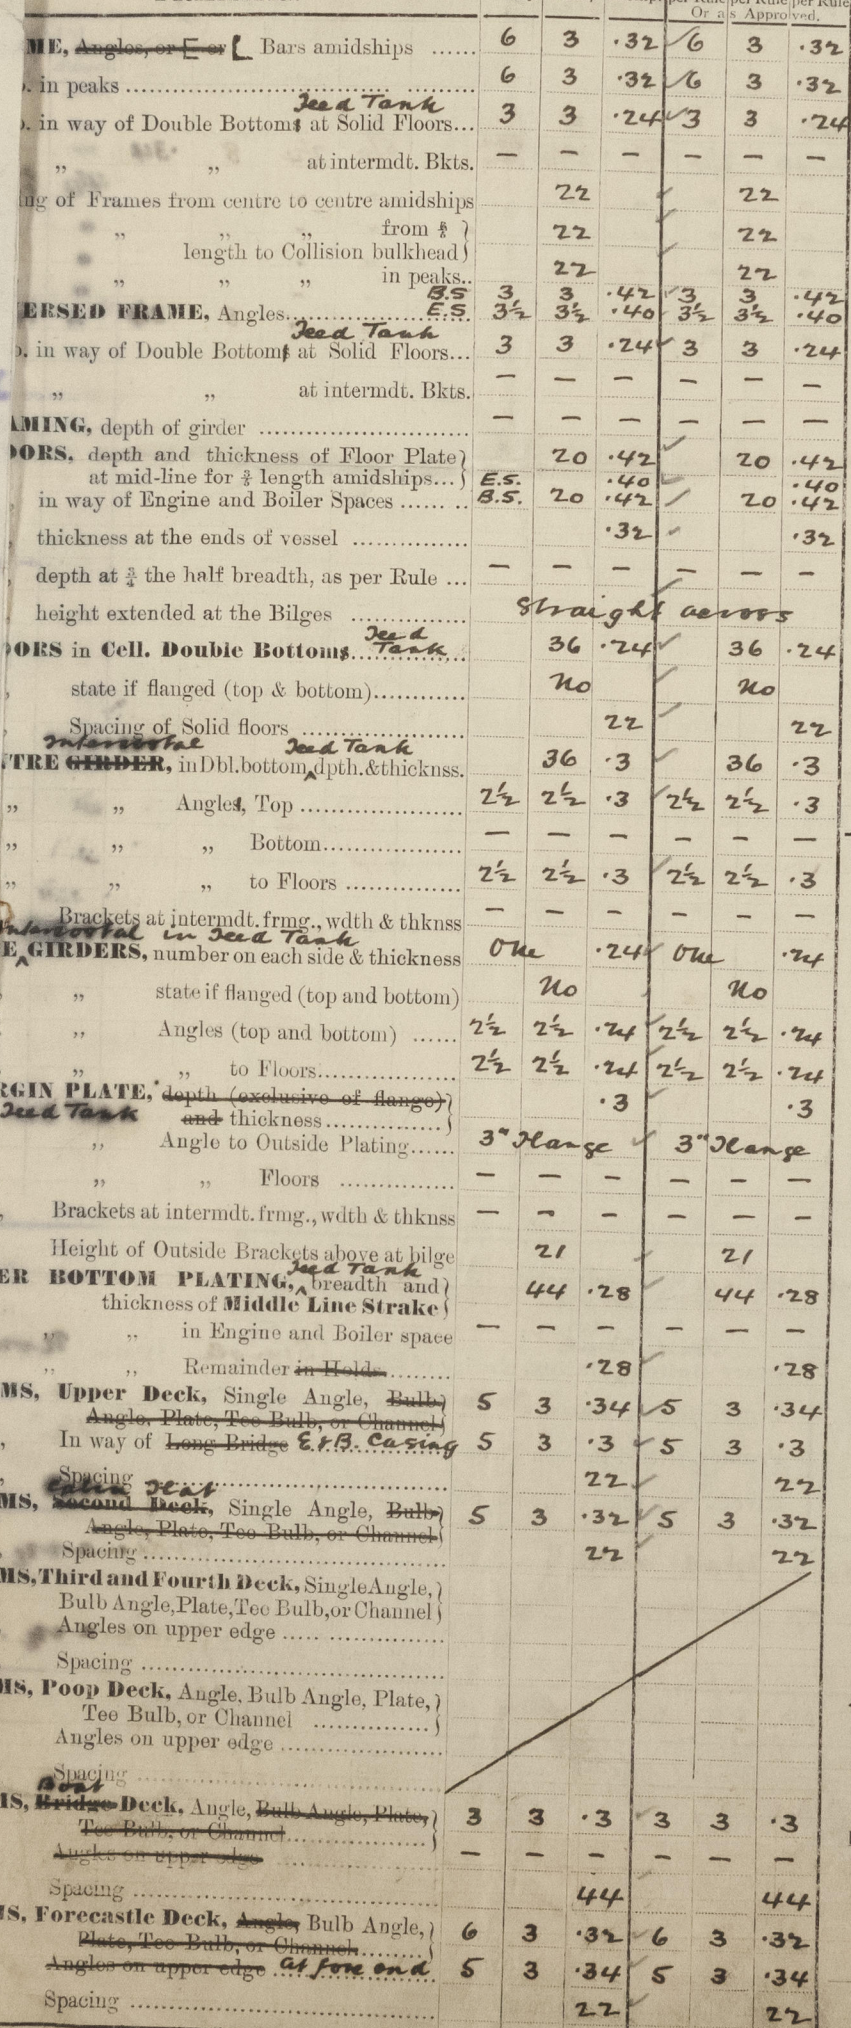 per Rule per Rule
Or as Approved.
ME, Angles, or E or [ Bars amidships ...... 6 3 .32 ✓ 6 3 .32
in peaks ........................ 6 3 .32 ✓ 6 3 .32
Feed Tank
in way of Double Bottoms at Solid Floors... 3 3 .24 ✓ 3 3 .24
„ „ at intermdt. Bkts. — — — — — —
ng of Frames from centre to centre amidships 22 ✓ 22
„ „ „ from ⅗ } 22 ✓ 22
length to Collision bulkhead }
„ „ „ in peaks.. 22 22
B.S 3 3 .42 ✓ 3 3 .42
ERSED FRAME, Angles............ E.S. 3½ 3½ .40 3½ 3½ .40
Feed Tank
o. in way of Double Bottoms at Solid Floors... 3 3 .24 ✓ 3 3 .24
„ „ at intermdt. Bkts. — — — — — —
AMING, depth of girder ............ — — — — — —
OORS, depth and thickness of Floor Plate } 20 .42 ✓ 20 .42
at mid-line for ¾ length amidships... } E.S. .40 .40
in way of Engine and Boiler Spaces ...... B.S. 20 .42 ✓ 20 .42
thickness at the ends of vessel ............ .32 ✓ .32
depth at ¾ the half breadth, as per Rule ... — — — — — —
height extended at the Bilges ............ Straight across
OORS in Cell. Double Bottoms Feed Tank 36 .24 ✓ 36 .24
state if flanged (top & bottom)............ No ✓ No
Spacing of Solid floors ............ 22 ✓ 22
Intercostal Feed Tank
TRE GIRDER, in Dbl. bottom, dpth. & thicknss. 36 .3 ✓ 36 .3
„ „ Angles, Top ............ 2½ 2½ .3 ✓ 2½ 2½ .3
„ „ „ Bottom............ — — — — — —
„ „ „ to Floors ............ 2½ 2½ .3 ✓ 2½ 2½ .3
Brackets at intermdt. frmg., wdth & thknss — — — — — —
Intercostal in Feed Tank
E GIRDERS, number on each side & thickness One .24 ✓ One .24
„ state if flanged (top and bottom) No No
„ Angles (top and bottom) ...... 2½ 2½ .24 ✓ 2½ 2½ .24
„ „ to Floors............ 2½ 2½ .24 ✓ 2½ 2½ .24
RGIN PLATE, depth (exclusive of flange) } .3 ✓ .3
Feed Tank and thickness............ }
„ Angle to Outside Plating...... 3" Flange ✓ 3" Flange
„ „ Floors ............ — — — — — —
Brackets at intermdt. frmg., wdth & thknss — — — — — —
Height of Outside Brackets above at bilge 21 ✓ 21
Feed Tank
ER BOTTOM PLATING, breadth and } 44 .28 ✓ 44 .28
thickness of Middle Line Strake }
„ „ in Engine and Boiler space — — — — — —
„ „ Remainder in Holds......... .28 ✓ .28
MS, Upper Deck, Single Angle, Bulb } 5 3 .34 ✓ 5 3 .34
Angle, Plate, Tee Bulb, or Channel }
In way of Long Bridge E & B. Casing 5 3 .3 ✓ 5 3 .3
Spacing ............ 22 ✓ 22
Cabin Flat
MS, Second Deck, Single Angle, Bulb } 5 3 .32 ✓ 5 3 .32
Angle, Plate, Tee Bulb, or Channel }
Spacing ............ 22 ✓ 22
MS, Third and Fourth Deck, Single Angle, }
Bulb Angle, Plate, Tee Bulb, or Channel }
Angles on upper edge ............
Spacing ............
MS, Poop Deck, Angle, Bulb Angle, Plate, }
Tee Bulb, or Channel ............ }
Angles on upper edge ............
Spacing ............
Boat
MS, Bridge Deck, Angle, Bulb Angle, Plate, } 3 3 .3 3 3 .3
Tee Bulb, or Channel............ }
Angles on upper edge ............ — — — — — —
Spacing ............ 44 44
MS, Forecastle Deck, Angle, Bulb Angle, } 6 3 .32 ✓ 6 3 .32
Plate, Tee Bulb, or Channel......... }
Angles on upper edge at fore end 5 3 .34 5 3 .34
Spacing ............ 22 22